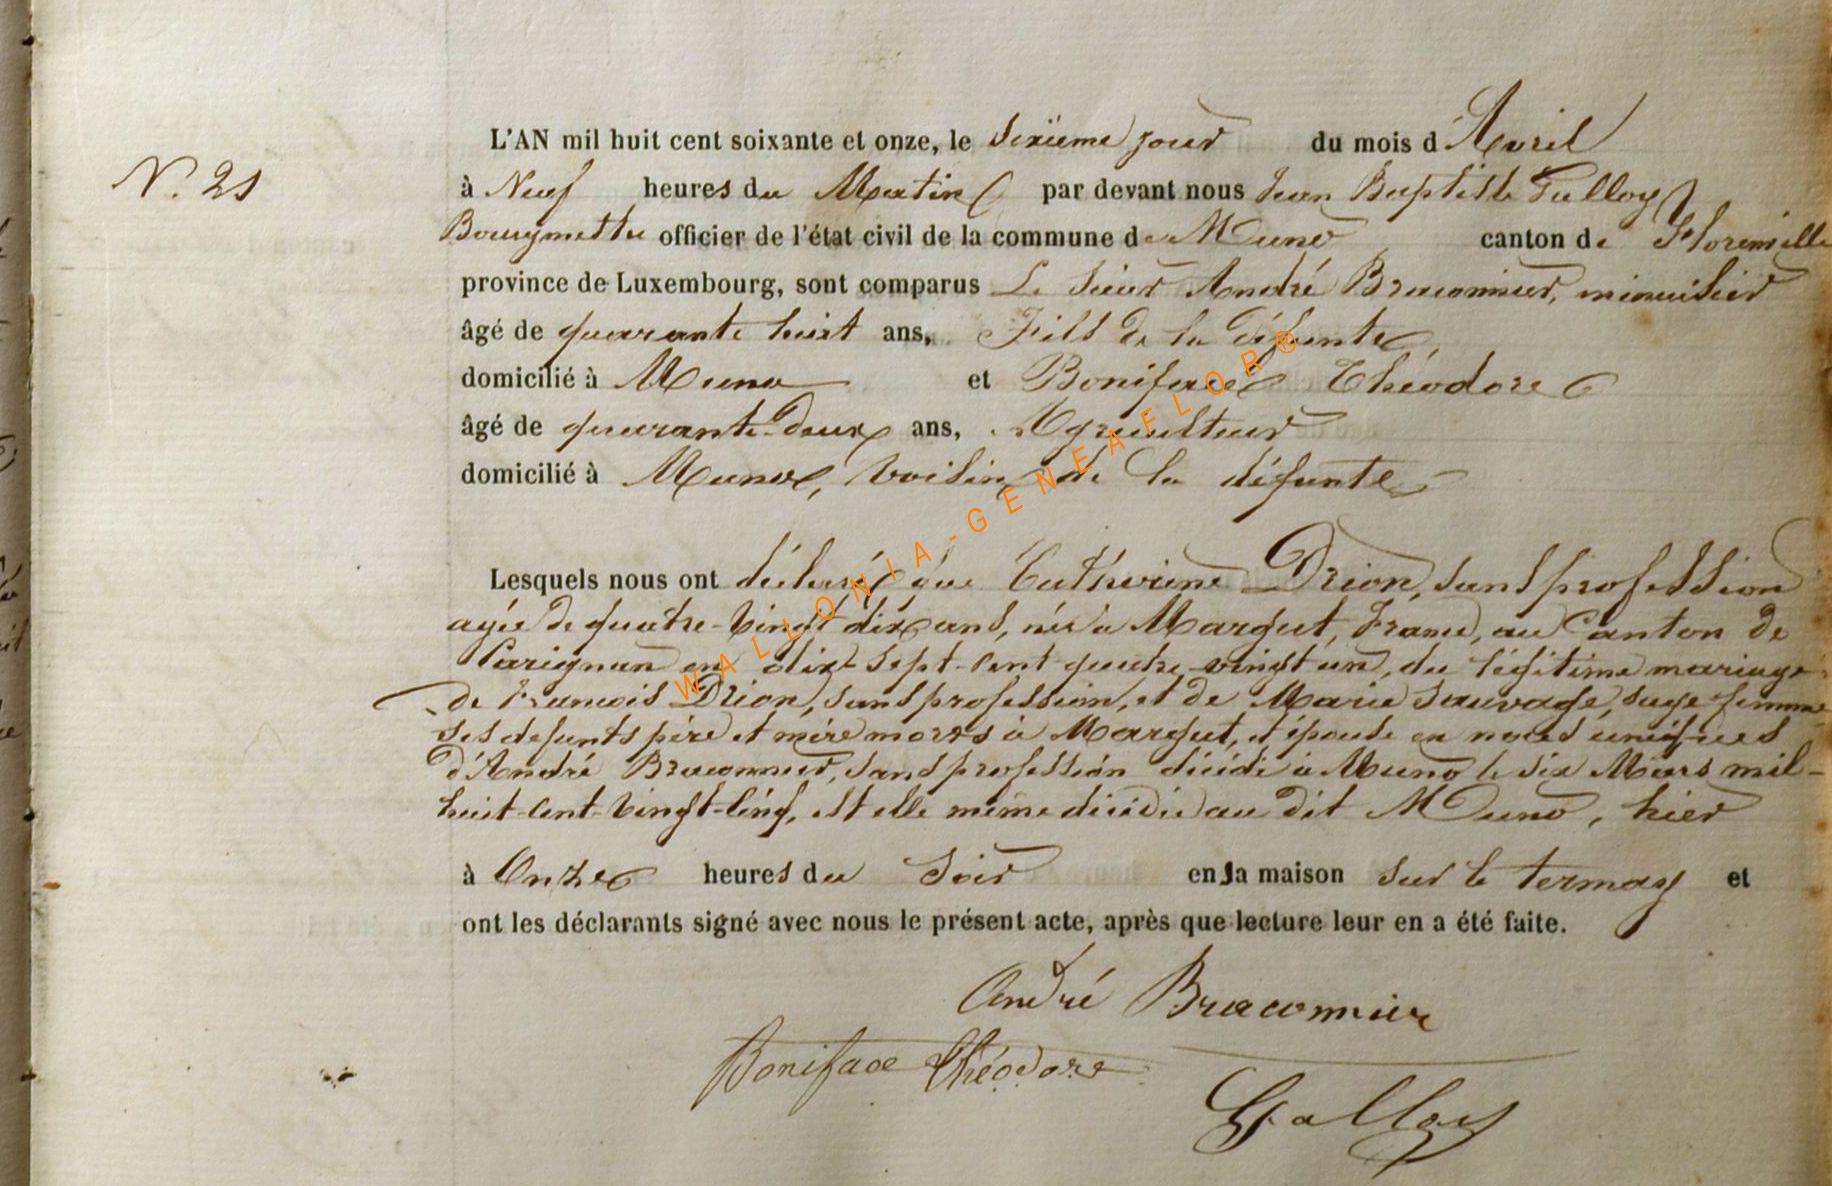 N. 21
L'AN mil huit cent soixante et onze, le sixième jour du mois d'Avril
à Neuf heures du Matin par devant nous Jean Baptiste Galloy
Bourgmettre officier de l'état civil de la commune de Muno canton de Florenville
province de Luxembourg, sont comparus Le Sieur André Braconnier, menuisier
âgé de quarante huit ans, Fils de la défunte,
domicilié à Muno et Boniface Théodore
âgé de quarante-deux ans, Agriculteur
domicilié à Muno, voisin de la défunte
Lesquels nous ont déclaré que Catherine Drion, sans profession
agée de quatre-vingt dix ans, née à Margut, France, au Canton de
Carignan en dix-sept-cent quatre vingt un, du légitime mariage
de Francois Drion, sans profession, et de Marie Sauvage, sage femme
ses defunts père et mère morts à Margut, et épouse en noces uniques
d'André Braconnier, sans profession décédé à Muno le six Mars mil-
huit-cent-vingt-cinq, est elle même décédée au dit Muno, hier
à Onze heures du Soir en sa maison sur le termay et
ont les déclarants signé avec nous le présent acte, après que lecture leur en a été faite.
André Braconnier
Boniface Théodore
Galloy
WALLONIA-GENEAFLOR®